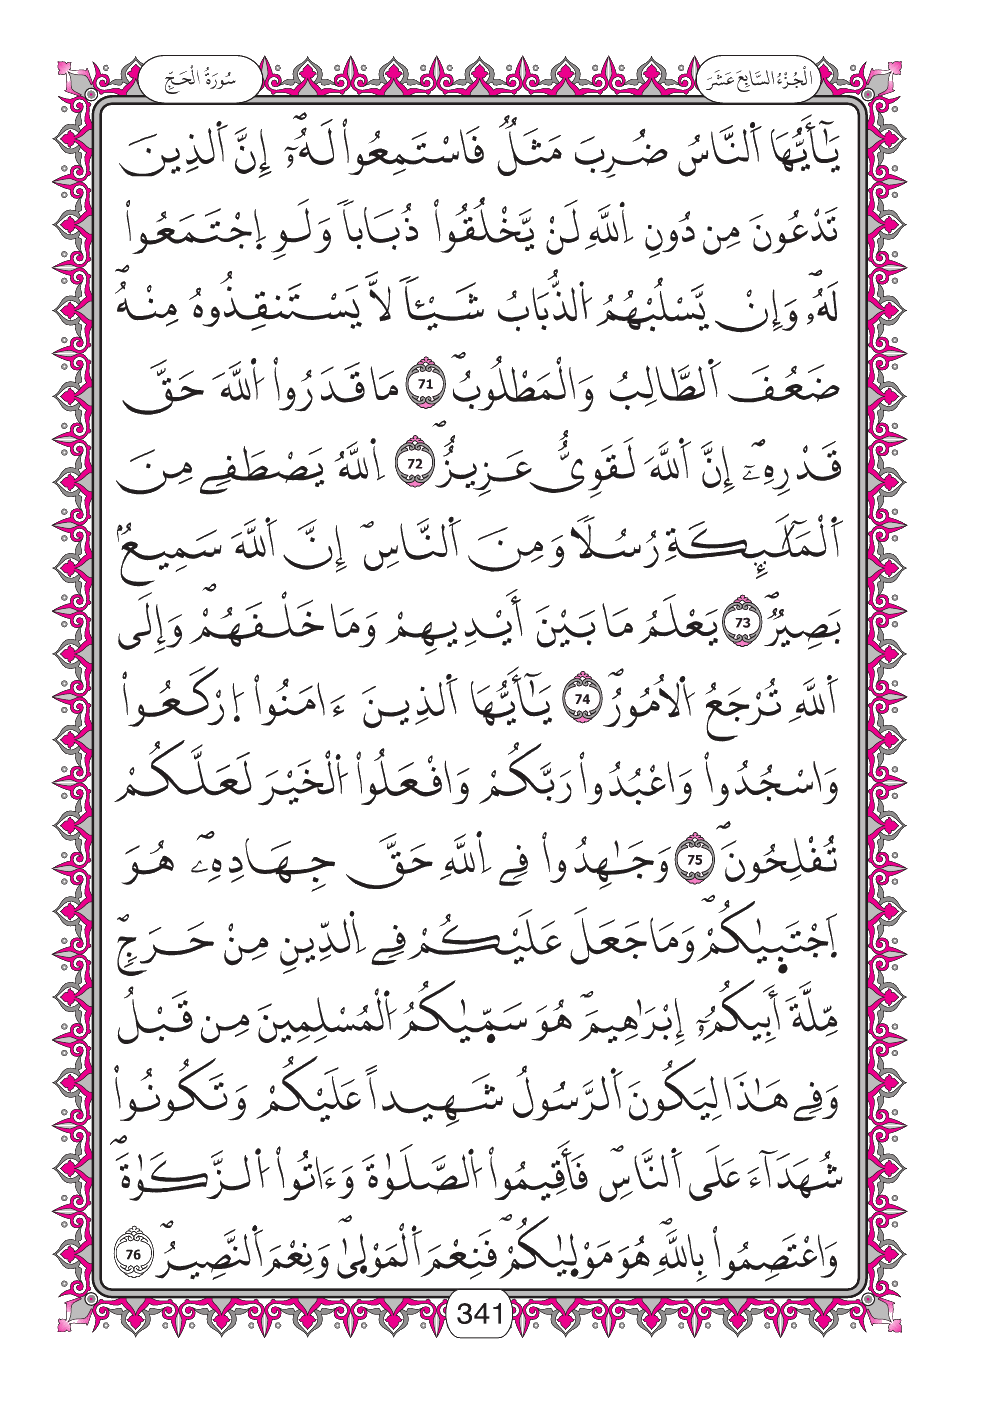 سُورَةُ الْحَجِّ
الْجُزْءُ السَّابِعَ عَشَرَ
يَٰٓأَيُّهَا اَ۬لنَّاسُ ضُرِبَ مَثَلٞ فَاسْتَمِعُواْ لَهُۥٓۖ إِنَّ اَ۬لذِينَ
تَدْعُونَ مِن دُونِ اِ۬للَّهِ لَنْ يَّخْلُقُواْ ذُبَاباٗ وَلَوِ اِ۪جْتَمَعُواْ
لَهُۥۖ وَإِنْ يَّسْلُبْهُمُ اُ۬لذُّبَابُ شَيْـٔاٗ لَّا يَسْتَنقِذُوهُ مِنْهُۖ
ضَعُفَ اَ۬لطَّالِبُ وَالْمَطْلُوبُۖ 71 مَا قَدَرُواْ اُ۬للَّهَ حَقَّ
قَدْرِهِۦٓۖ إِنَّ اَ۬للَّهَ لَقَوِيٌّ عَزِيزٌۖ 72 اِ۬للَّهُ يَصْطَفِے مِنَ
اَ۬لْمَلَٰٓئِكَةِ رُسُلاٗ وَمِنَ اَ۬لنَّاسِۖ إِنَّ اَ۬للَّهَ سَمِيعُۢ
بَصِيرٞۖ 73 يَعْلَمُ مَا بَيْنَ أَيْدِيهِمْ وَمَا خَلْفَهُمْۖ وَإِلَى
اَ۬للَّهِ تُرْجَعُ اُ۬لْأُمُورُۖ 74 يَٰٓأَيُّهَا اَ۬لذِينَ ءَامَنُواْ اُ۪رْكَعُواْ
وَاسْجُدُواْ وَاعْبُدُواْ رَبَّكُمْ وَافْعَلُواْ اُ۬لْخَيْرَ لَعَلَّكُمْ
تُفْلِحُونَۖ 75 وَجَٰهِدُواْ فِے اِ۬للَّهِ حَقَّ جِهَادِهِۦۖ هُوَ
اَ۪جْتَبۭيٰكُمْۖ وَمَا جَعَلَ عَلَيْكُمْ فِے اِ۬لدِّينِ مِنْ حَرَجٖۖ
مِّلَّةَ أَبِيكُمُۥٓ إِبْرَٰهِيمَۖ هُوَ سَمّۭيٰكُمُ اُ۬لْمُسْلِمِينَ مِن قَبْلُ
وَفِے هَٰذَا لِيَكُونَ اَ۬لرَّسُولُ شَهِيداً عَلَيْكُمْ وَتَكُونُواْ
شُهَدَآءَ عَلَى اَ۬لنَّاسِۖ فَأَقِيمُواْ اُ۬لصَّلَوٰةَ وَءَاتُواْ اُ۬لزَّكَوٰةَۖ
وَاعْتَصِمُواْ بِاللَّهِۖ هُوَ مَوْلۭيٰكُمْۖ فَنِعْمَ اَ۬لْمَوْلۭيٰۖ وَنِعْمَ اَ۬لنَّصِيرُۖ 76
341